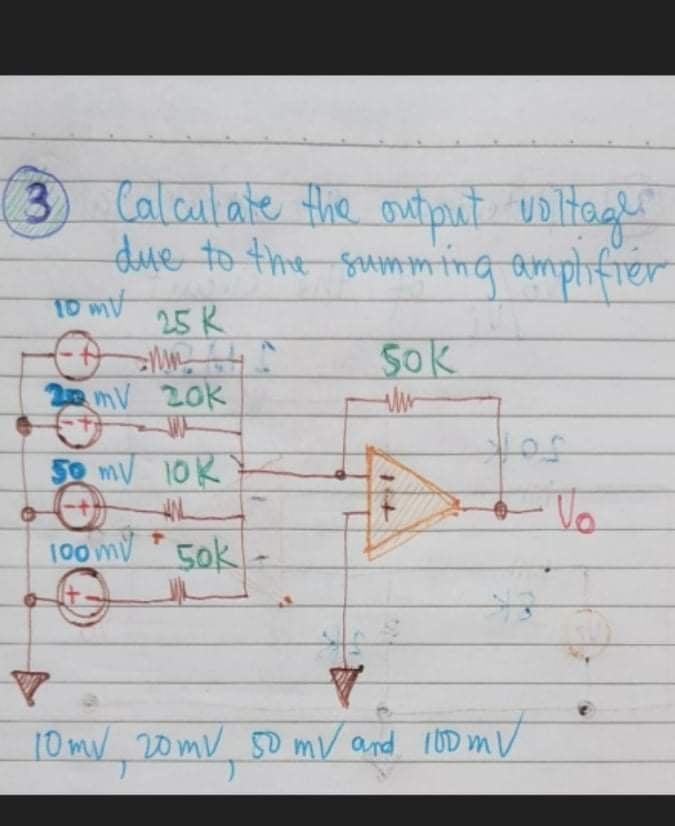 3 Calculate the output voltage
due to the summing amplifier
10 mV 25 K
- +
50K
20 mV 20K
- +
50 mV 10K
- +
-
+
Vo
100 mV 50K
+ -
10mV, 20mV, 50 mV and 100 mV